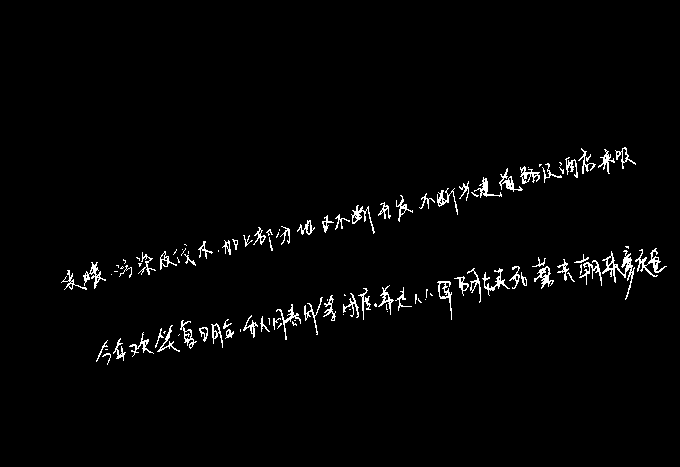 变暖、污染及伐木,加上部分地区不断开发,不断兴建道路及酒店来吸
今年欢笑复明年,秋月春风等闲度。弟走从军阿姨死,暮去朝来颜色